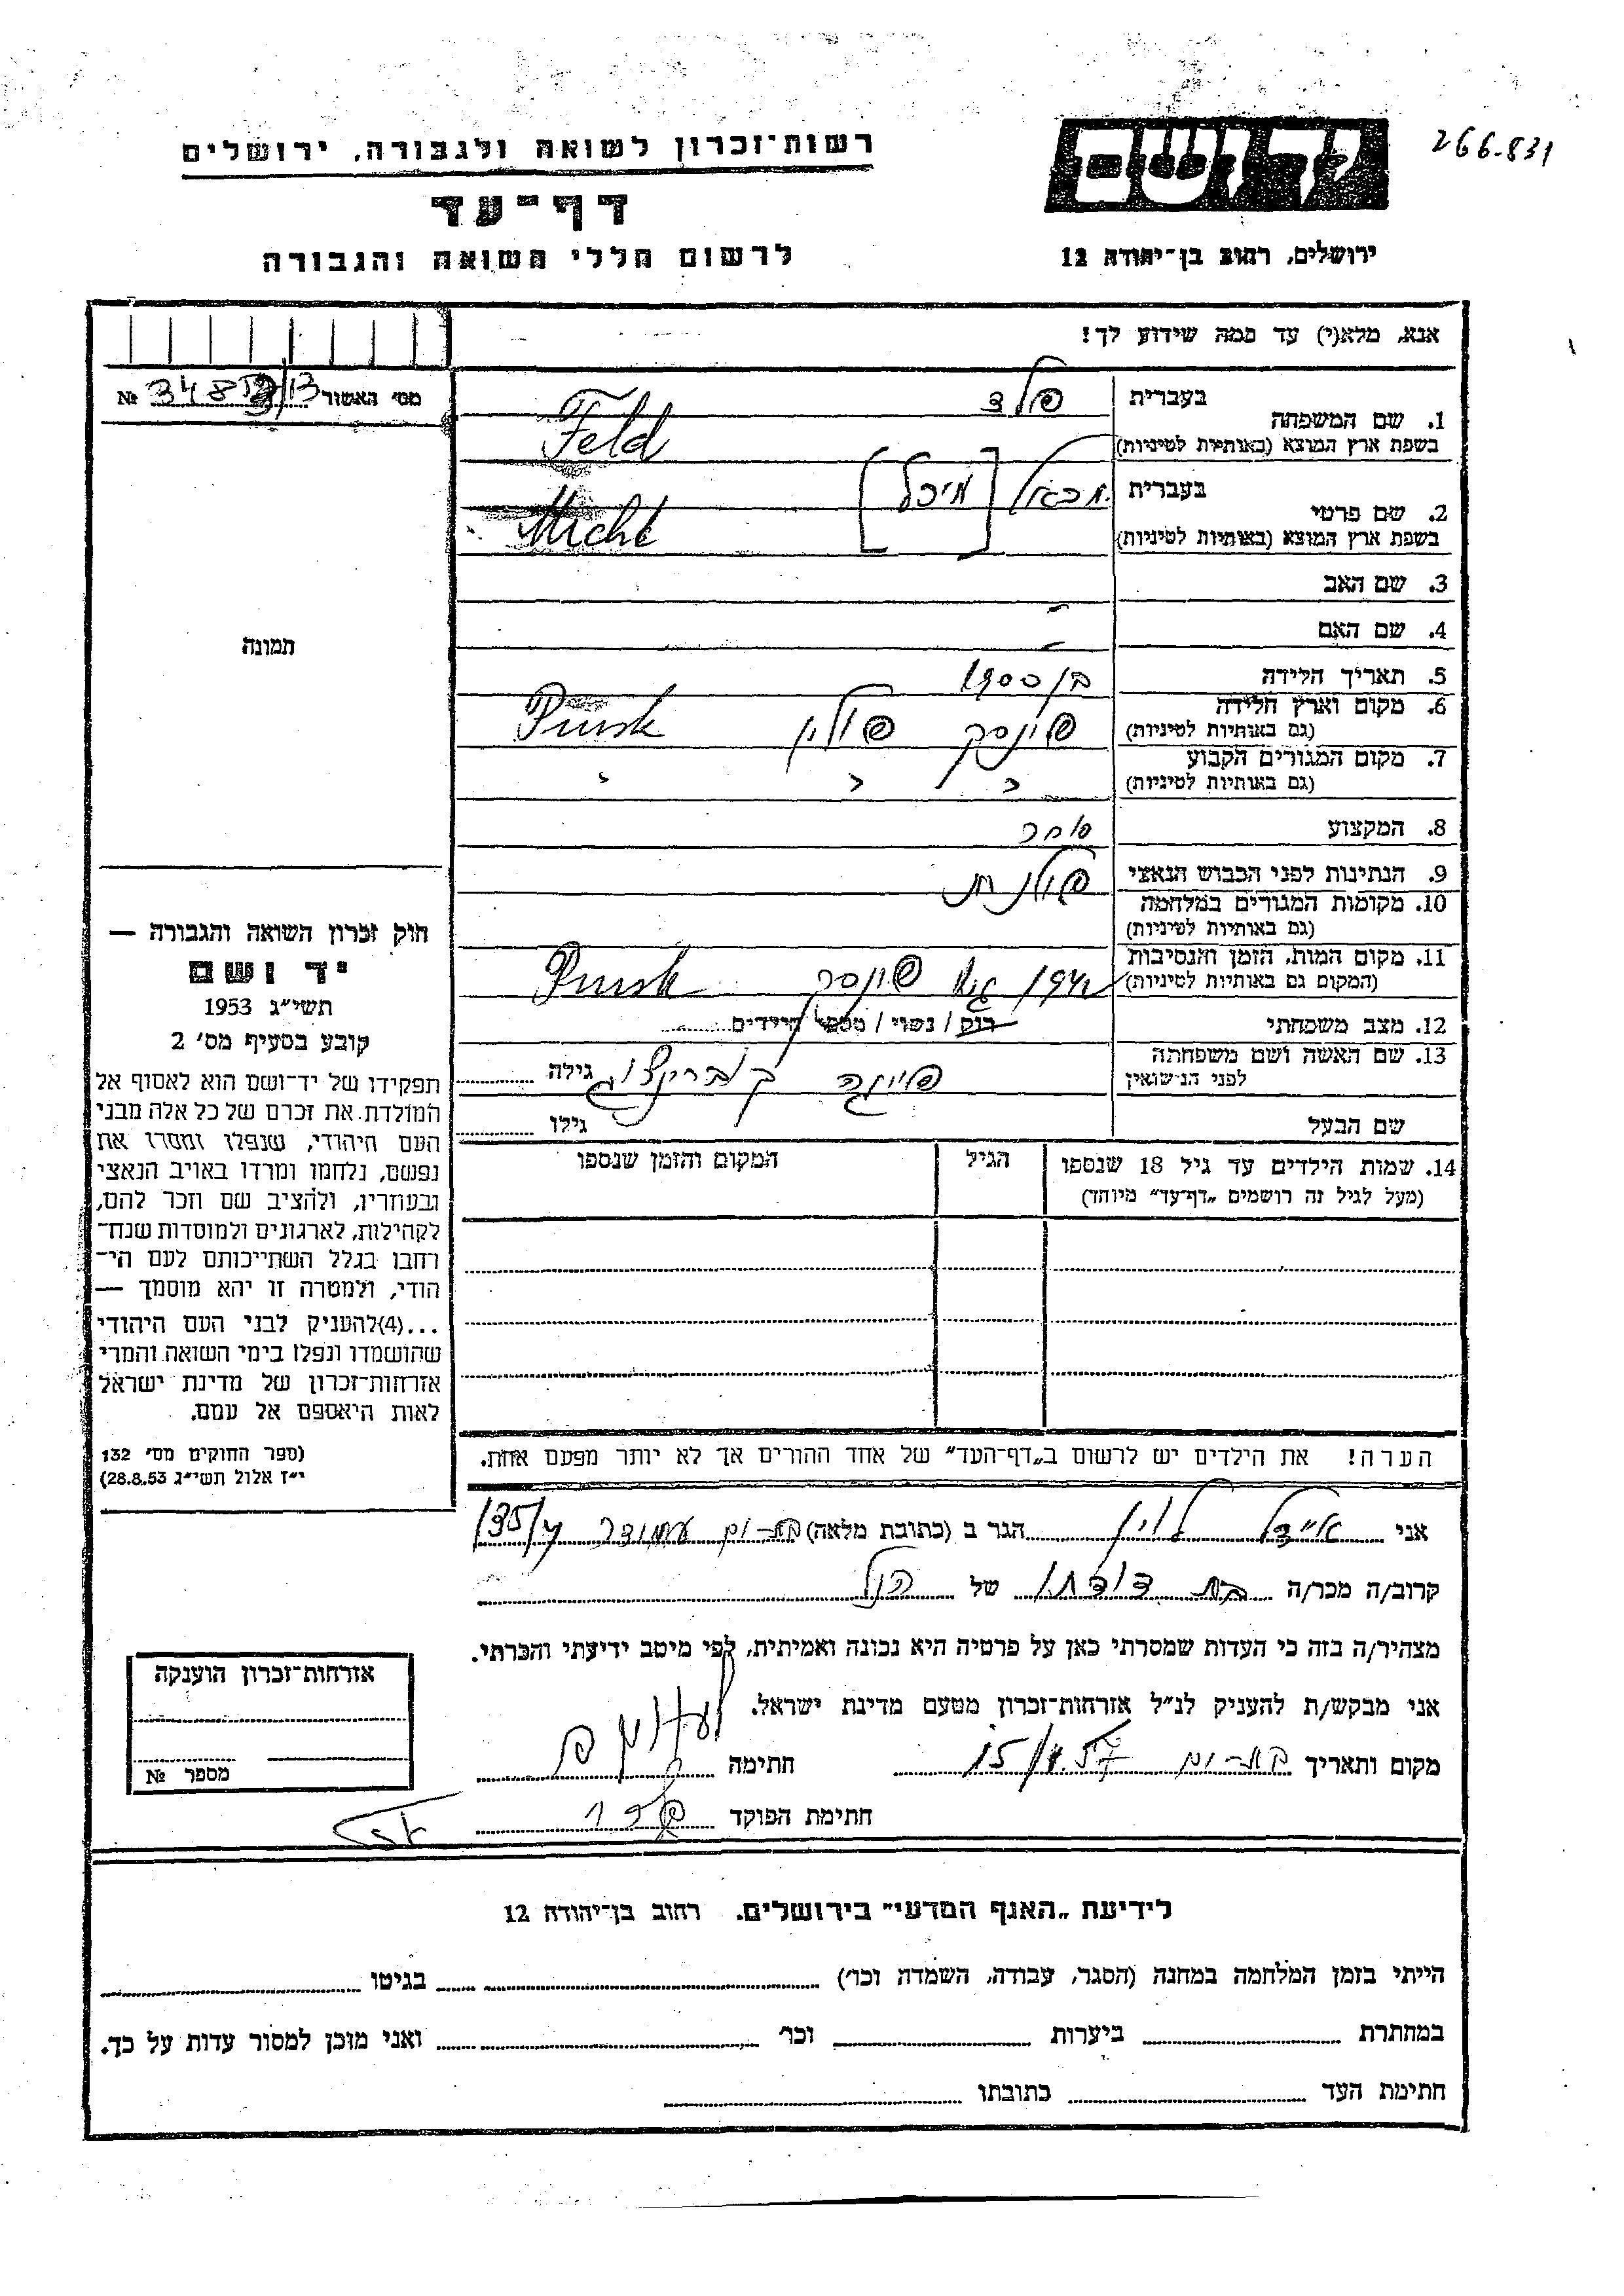 266-831
יד ושם
רשות־זכרון לשואה ולגבורה, ירושלים
דף־עד
ירושלים, רחוב בן־יהודה 12
לרשום חללי השואה והגבורה
אנא, מלא(י) עד כמה שידוע לך!
מס׳ האשור №
1. שם המשפחה
בעברית פלד
בשפת ארץ המוצא (באותיות לטיניות) Feld
2. שם פרטי
בעברית מכאל [מיכל]
בשפת ארץ המוצא (באותיות לטיניות)
3. שם האב
4. שם האם -
תמונה
5. תאריך הלידה בן 1900
6. מקום וארץ הלידה
(גם באותיות לטיניות) פינסק פולין Pinsk
7. מקום המגורים הקבוע
(גם באותיות לטיניות) " " "
8. המקצוע סוחר
9. הנתינות לפני הכבוש הנאצי פולנית
10. מקומות המגורים במלחמה
(גם באותיות לטיניות)
11. מקום המות, הזמן והנסיבות
(המקום גם באותיות לטיניות) גיטו פינסק Pinsk
12. מצב משכחתי רוק / נשוי / מספר הילדים
13. שם האשה ושם משפחתה
לפני הנישואין גילה
שם הבעל גילו
14. שמות הילדים עד גיל 18 שנספו
(מעל לגיל זה רושמים „דף־עד״ מיוחד)
הגיל
המקום והזמן שנספו
חוק זכרון השואה והגבורה —
יד ושם
תשי״ג 1953
קובע בסעיף מס׳ 2
תפקידו של יד־ושם הוא לאסוף אל
המולדת את זכרם של כל אלה מבני
העם היהודי, שנפלו ומסרו את
נפשם, נלחמו ומרדו באויב הנאצי
ובעוזריו, ולהציב שם וזכר להם,
לקהילות, לארגונים ולמוסדות שנח־
רבו בגלל השתייכותם לעם הי־
הודי, ולמטרה זו יהא מוסמך —
...(4) להעניק לבני העם היהודי
שהושמדו ונפלו בימי השואה והמרי
אזרחות־זכרון של מדינת ישראל
לאות היאספם אל עמם.
(ספר החוקים מס׳ 132
י״ז אלול תשי״ג 28.8.53)
הערה! את הילדים יש לרשום ב„דף־העד״ של אחד ההורים אך לא יותר מפעם אחת.
אני לוין הגר ב (כתובת מלאה) בת-ים
קרוב/ה מכר/ה בת דודתו של הנ"ל
מצהיר/ה בזה כי העדות שמסרתי כאן על פרטיה היא נכונה ואמיתית, לפי מיטב ידיעתי והכרתי.
אני מבקש/ת להעניק לנ״ל אזרחות־זכרון מטעם מדינת ישראל.
מקום ותאריך בת-ים חתימה
חתימת הפוקד
אזרחות־זכרון הוענקה
מספר №
לידיעת „האגף המדעי״ בירושלים. רחוב בן־יהודה 12
הייתי בזמן המלחמה במחנה (הסגר, עבודה, השמדה וכו׳) בגיטו
במחתרת ביערות וכו׳ ואני מוכן למסור עדות על כך.
חתימת העד כתובתו